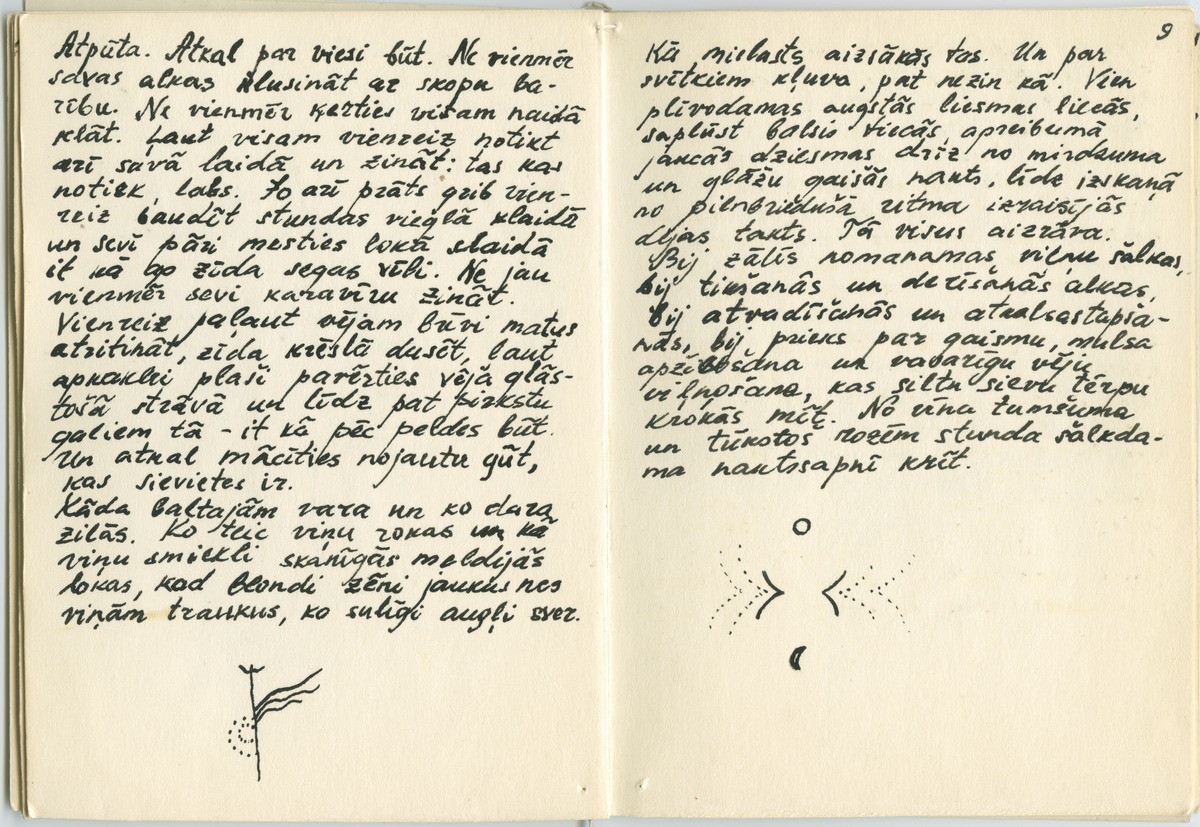 Atpūta. Atkal par viesi būt. Ne vienmēr
savas alkas klusināt ar skopu ba-
rību. Ne vienmēr ķerties visam naidā
klāt. Ļaut visam vienreiz notikt
arī savā laidā un zināt: tas kas
notiek, labs. Jo arī prāts grib vien-
reiz baudīt stundas vieglā klaidā
un sevi pāri mesties lokā slaidā
it kā go zīda segas vīli. Ne jau
vienmēr sevi karavīru zināt.
Vienreiz paļaut vējam brīvi matus
atritināt, zīda krēslā dusēt, ļaut
apkaklei plaši pavērties vēja glās-
tošā strāvā un līdz pat pirkstu
galiem tā - it kā pēc peldes būt.
Un atkal mācīties nojautu gūt,
kas sievietes ir.
Kāda baltajām vara un ko dara
zilās. Ko teic viņu rokas un kā
viņu smiekli skanīgās meldijās
lokas, kad blondi zēni jaukus nes
viņām traukus, ko sulīgi augļi sver.
9
Kā mielasts aizsākās tas. Un par
svētkiem kļuva, pat nezin kā. Vien
plīvodamas augstās liesmas liecās,
saplūst balsis viecās, apreibumā
jaucās dziesmas drīz no mirdzuma
un glāžu gaišās nauts, līdz izskaņā
no pilnbriedušā ritma izraisījās
dejas takts. Tā visus aizrāva.
Bij zālīs nomanāmas viļņu šalkas,
bij tikšanās un derīšanās alkas,
bij atvadīšanās un atkalsastapša-
nās, bij prieks par gaismu, mulsa
apžilbšana un vakarīgu vēju
viļņošana, kas siltu sievu tērpu
krokās mīt. No vīna tumšuma
un tūkstoš rozēm stunda šalkda-
ma nautssapnī krīt.